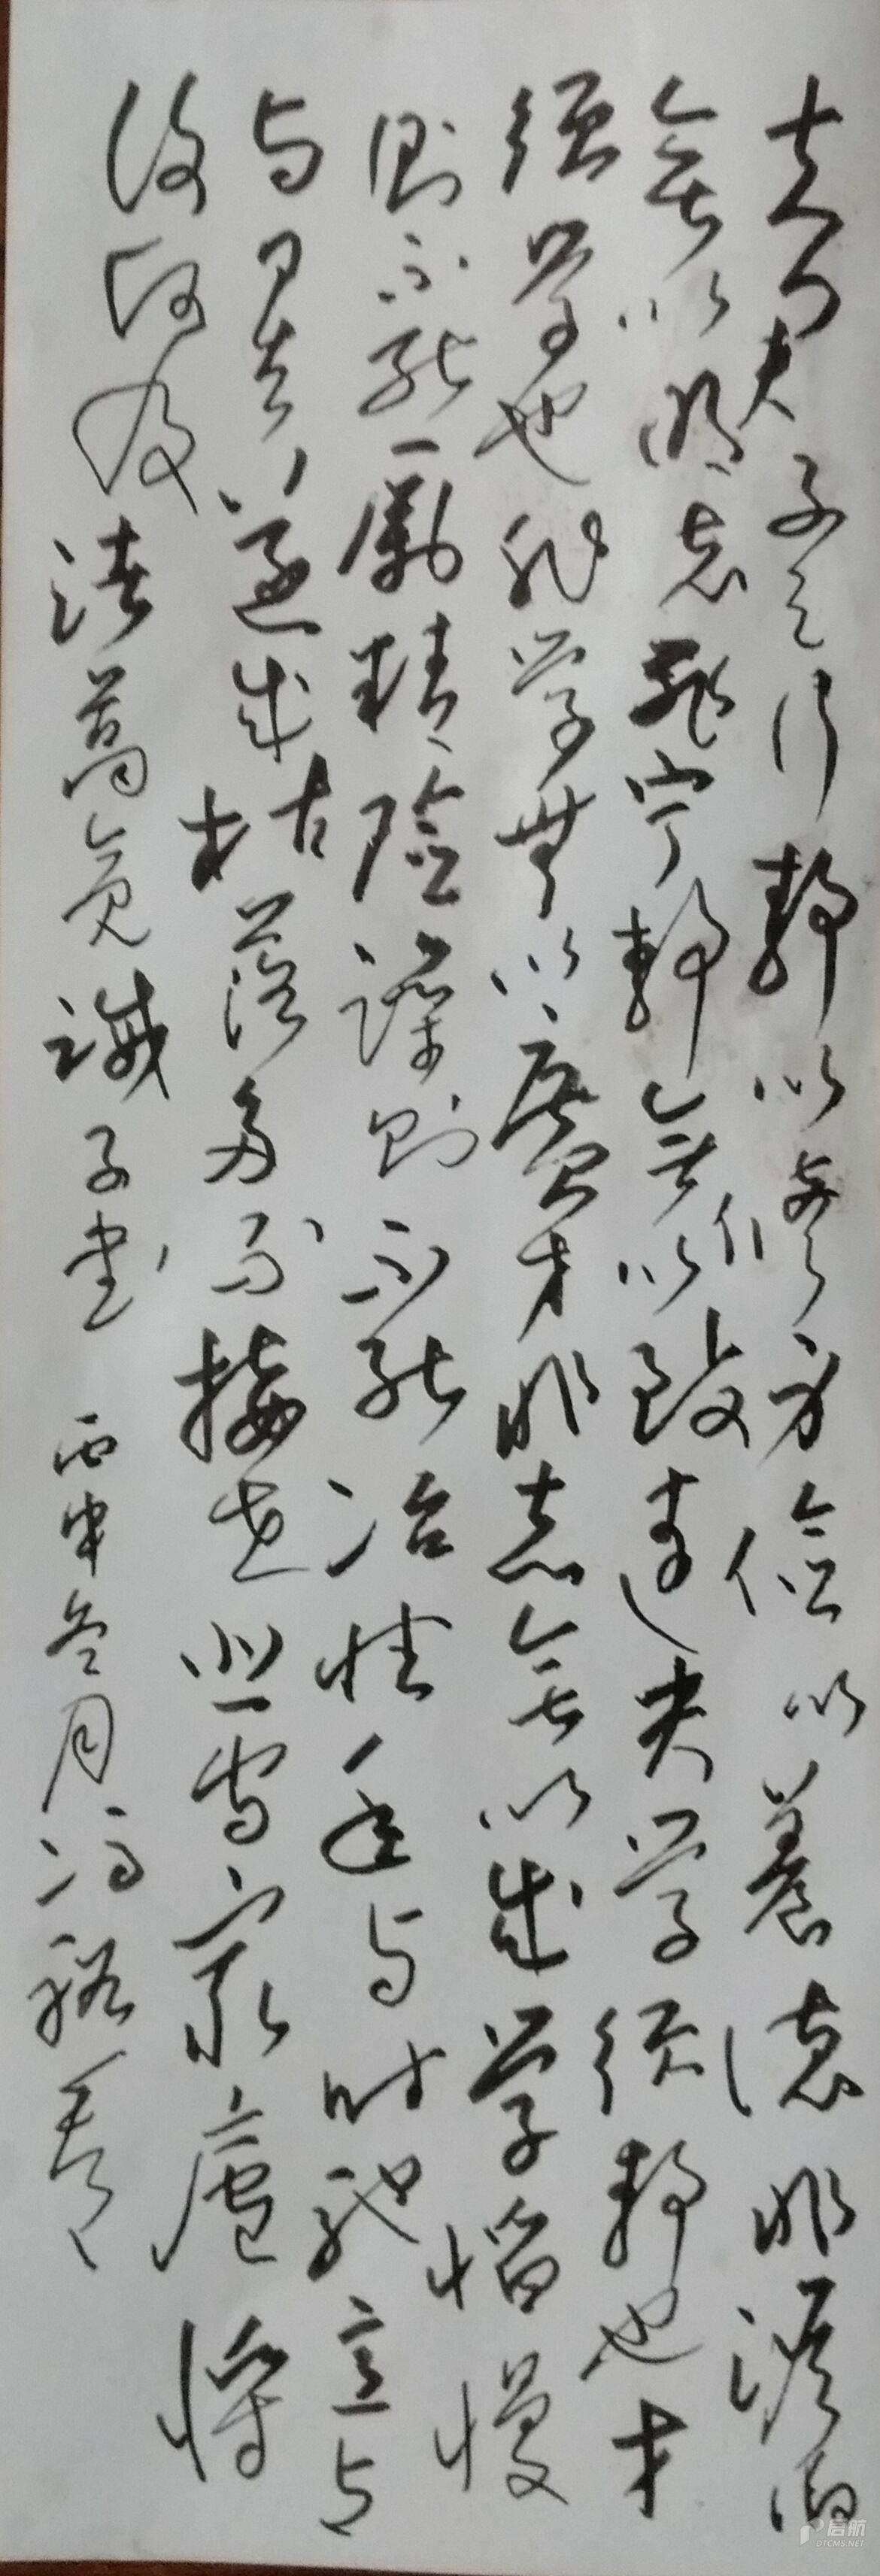 夫君夫子之行静以修身俭以養德非澹泊
無以明志非宁静無以致遠夫学须静也才
须学也非学無以廣才非志無以成学慆慢
则不能励精险躁则不能冶性年与时驰意与
与日去遂成枯落多不接世悲守穷廬将
復何及 诸葛亮诫子書 丙申冬月冯
启航
DTCMS.NET